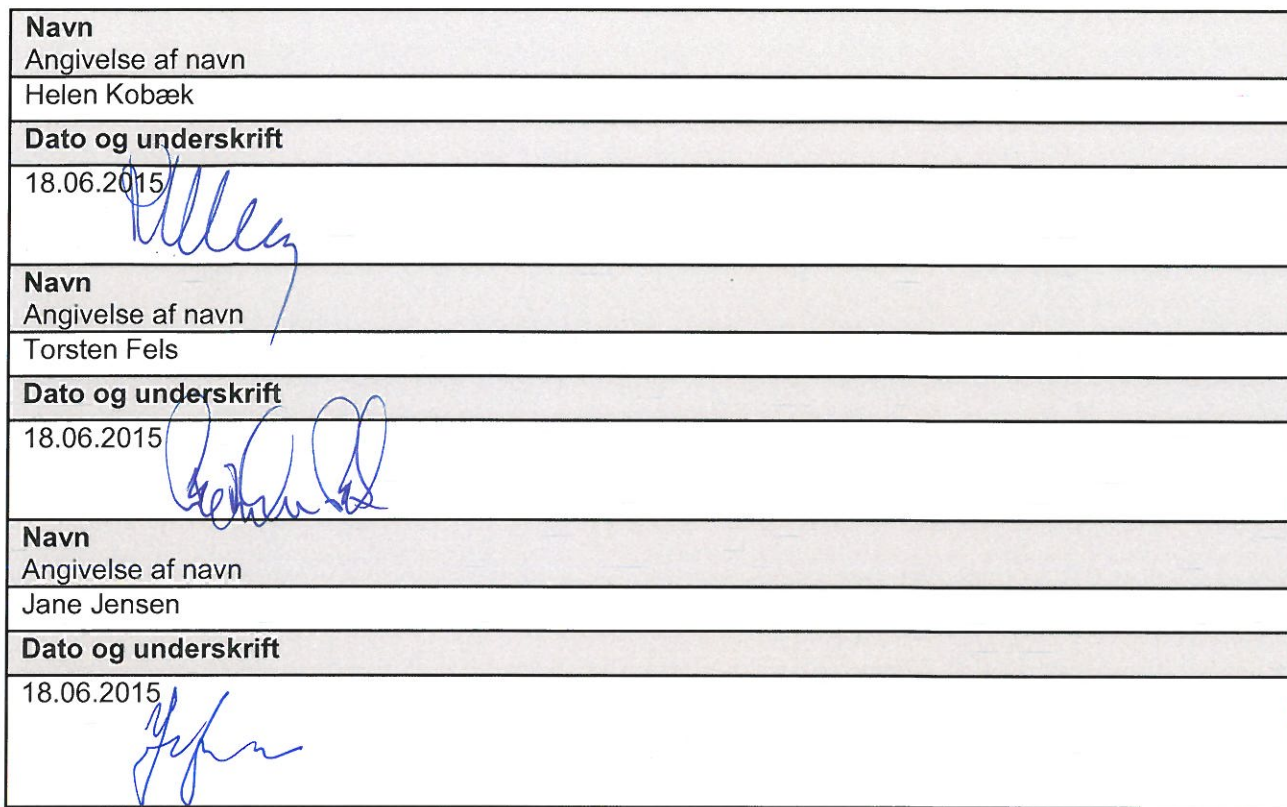 Navn
Angivelse af navn
Helen Kobæk
Dato og underskrift
18.06.2015
Navn
Angivelse af navn
Torsten Fels
Dato og underskrift
18.06.2015
Navn
Angivelse af navn
Jane Jensen
Dato og underskrift
18.06.2015